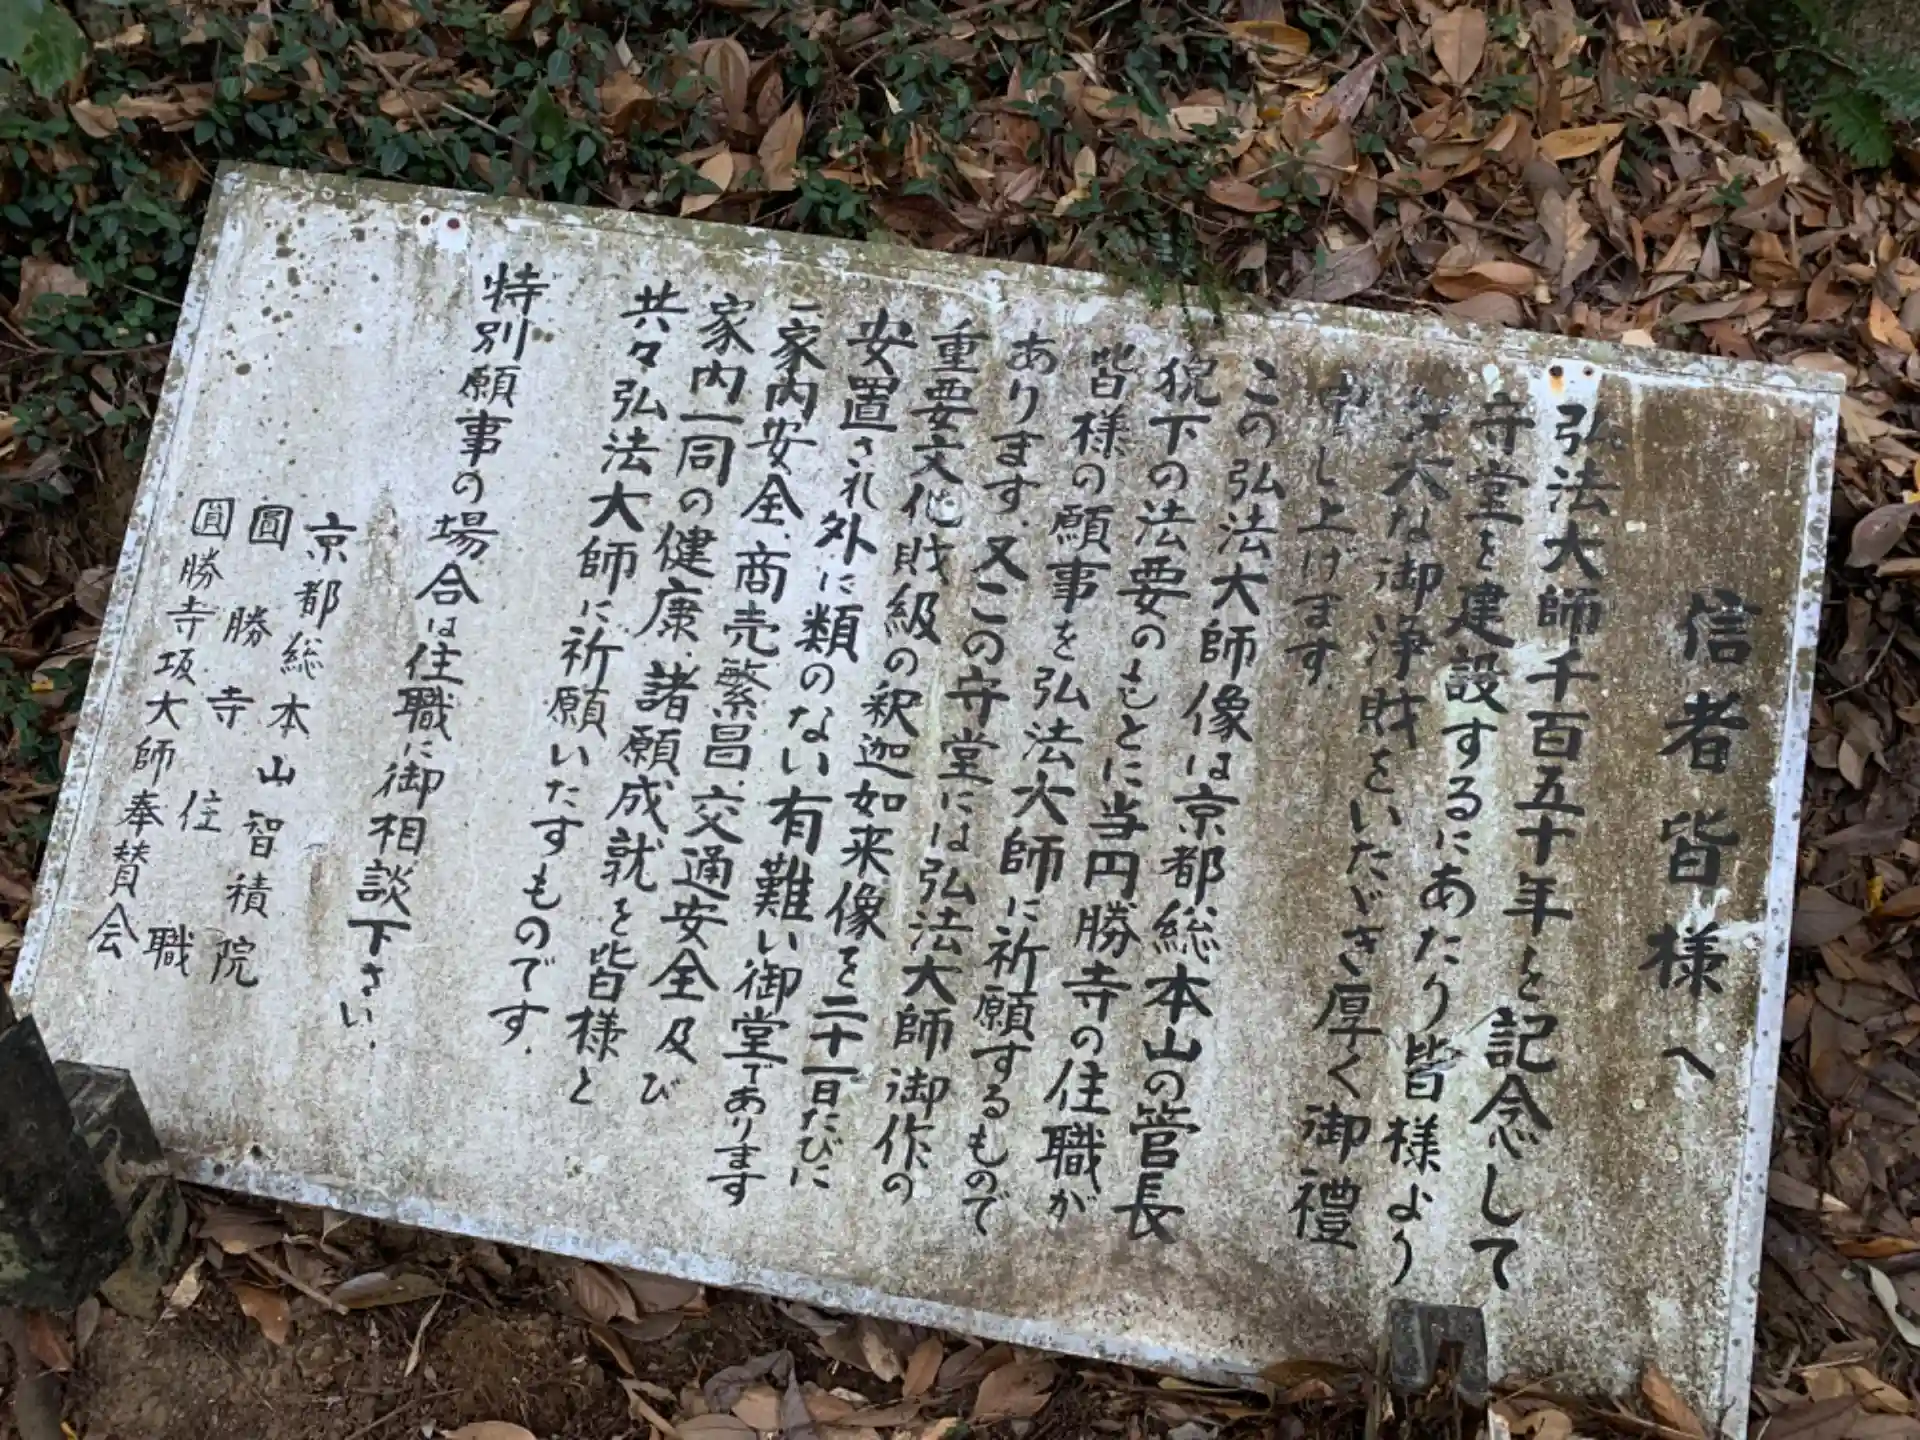 信者皆様へ
弘法大師千百五十年を記念して
守堂を建設するにあたり皆様より
大な御浄財をいたゞき厚く御禮
申し上げます.
この弘法大師像は京都総本山の管長
猊下の法要のもとに当円勝寺の住職が
皆様の願事を弘法大師に祈願するもので
あります.又この守堂には弘法大師御作の
重要文化財級の釈迦如来像を二十一日たびに
安置され外に類のない有難い御堂であります
一家内安全.商売繁昌.交通安全及び
家内一同の健康.諸願成就を皆様と
共々弘法大師に祈願いたすものです.
特別願事の場合は住職に御相談下さい.
京都総本山智積院
圓勝寺住職
圓勝寺坂大師奉賛会